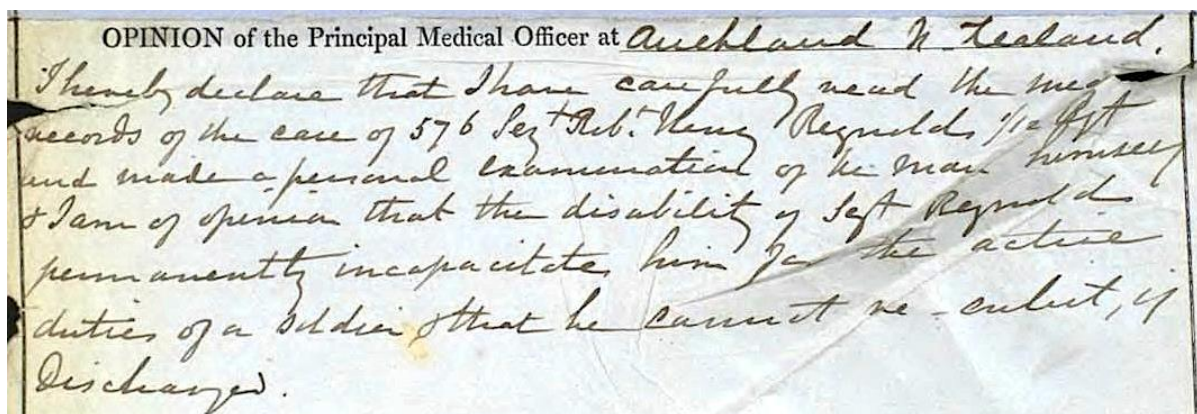 OPINION of the Principal Medical Officer at Auckland N. Zealand.
I hereby declare that I have carefully read the
records of the case of 576 Serjt Robt. Henry Reynolds Regt
and made a personal examination of the man himself
& I am of opinion that the disability of Sergt Reynolds
permanently incapacitates him for the active
duties of a Soldier & that he cannot re-enlist, if
Discharged.